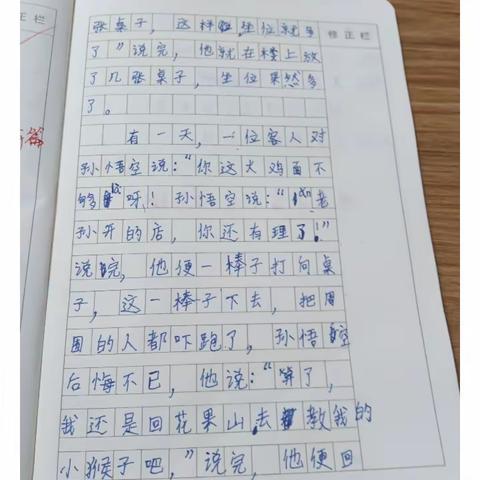 张桌子，这样坐位就多
修正栏
了”说完，他就在楼上放
了几张桌子，坐位果然多
了。
有一天，一位客人对
孙悟空说：“你这火鸡面不
够呀！孙悟空说：“老
孙开的店，你还有理了！”
说皖，他便一棒子打向桌
子，这一棒子下去，把周
围的人都吓跑了，孙悟空
后悔不已，他说：“算了，
我还是回花果山去教我的
小猴子吧，”说完，他便回
篇